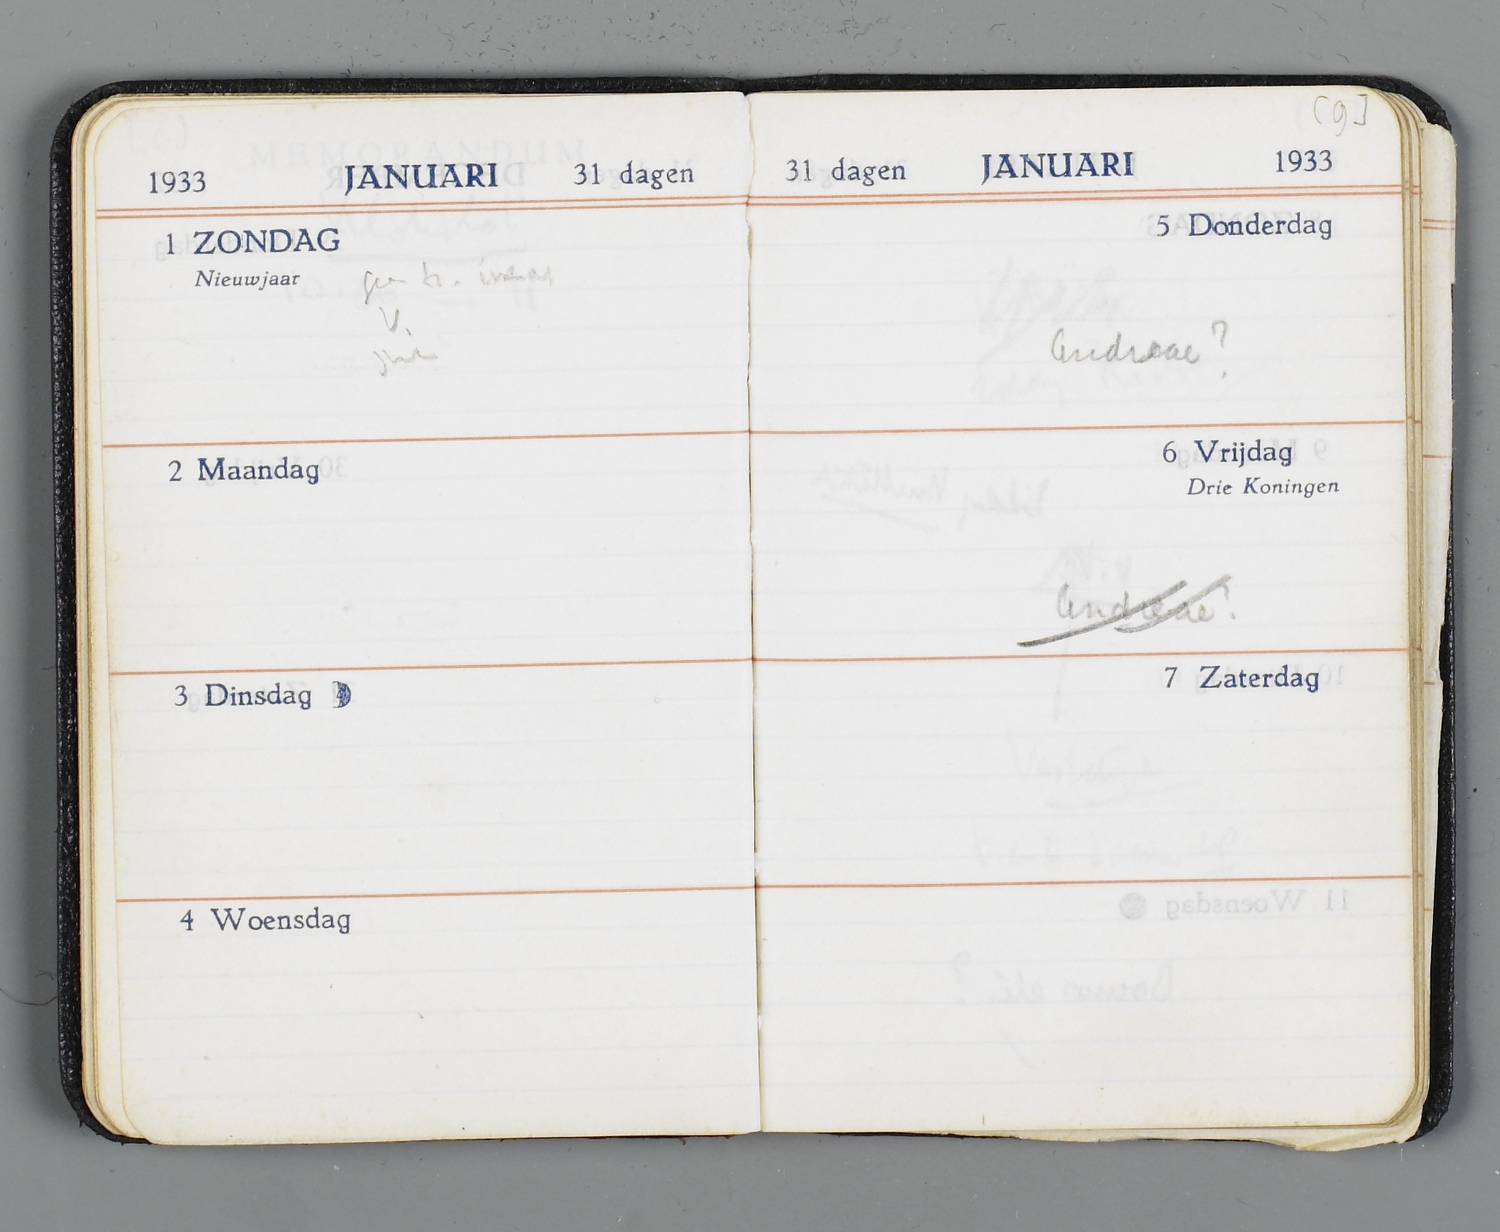 1933 JANUARI 31 dagen
1 ZONDAG
Nieuwjaar
V.
2 Maandag
3 Dinsdag
4 Woensdag
[9]
31 dagen JANUARI 1933
5 Donderdag
Andreae?
6 Vrijdag
Drie Koningen
Andreae?
7 Zaterdag